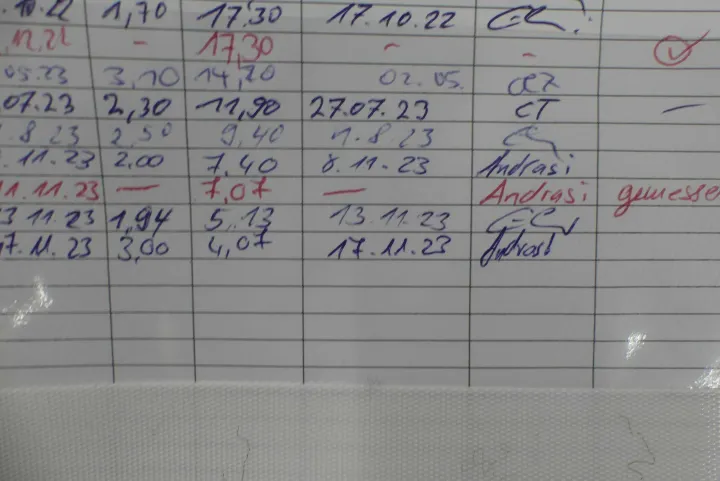 .10.22 1,70 17,30 17.10.22
.12.22 - 17,30 - -
.05.23 3,10 14,20 02.05.
07.23 2,30 11,90 27.07.23 CT —
.8.23 2,50 9,40 1.8.23
.11.23 2.00 7.40 8.11.23 Andrasi
11.11.23 — 7,07 — Andrasi gemesse
13.11.23 1,94 5,13 13.11.23
17.11.23 3,00 4,07 17.11.23 Andrasi